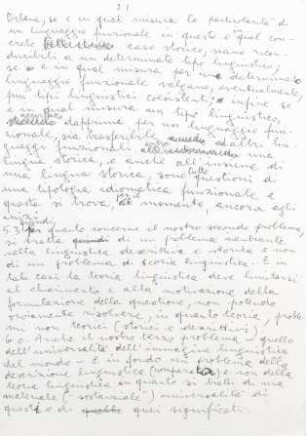 21
Orbene, se e in qual misura le particolarità di
un linguaggio funzionale in questo o in quel con-
creto caso storico, siano ricon-
ducibili a un determinato tipo linguistico;
se e in qual misura per un determinato
linguaggio funzionale valgano, eventualmente,
più tipi linguistici coesistenti; infine se
e in qual misura un tipo linguistico,
dapprima per un linguaggio fun-
zionale, sia trasferibile ad altri lin-
guaggi funzionali una
lingua storica, e anche all'insieme di
una lingua storica, sono tutte questioni di
una tipologia idiomatica funzionale e
questa si trova, al momento, ancora agli
inizi.
5.3. Per quanto concerne il nostro secondo problema,
si tratta di un problema rientrante
nella linguistica descrittiva e storica e non
di un problema di teoria linguistica. E in
tali casi la teoria linguistica deve limitarsi
al chiarimento e alla motivazione della
formulazione della questione, non potendo
ovviamente risolvere, in quanto teoria, proble-
mi non teorici (storici e descrittivi).
6.0. Anche il nostro terzo problema – quello
dell'universalità dell'immagine linguistica
del mondo – è in fondo un problema della
descrizione linguistica (comparata) e non della
teoria linguistica in quanto si tratti di una
materiale ("sostanziale") universalità di
questi e di quei significati.